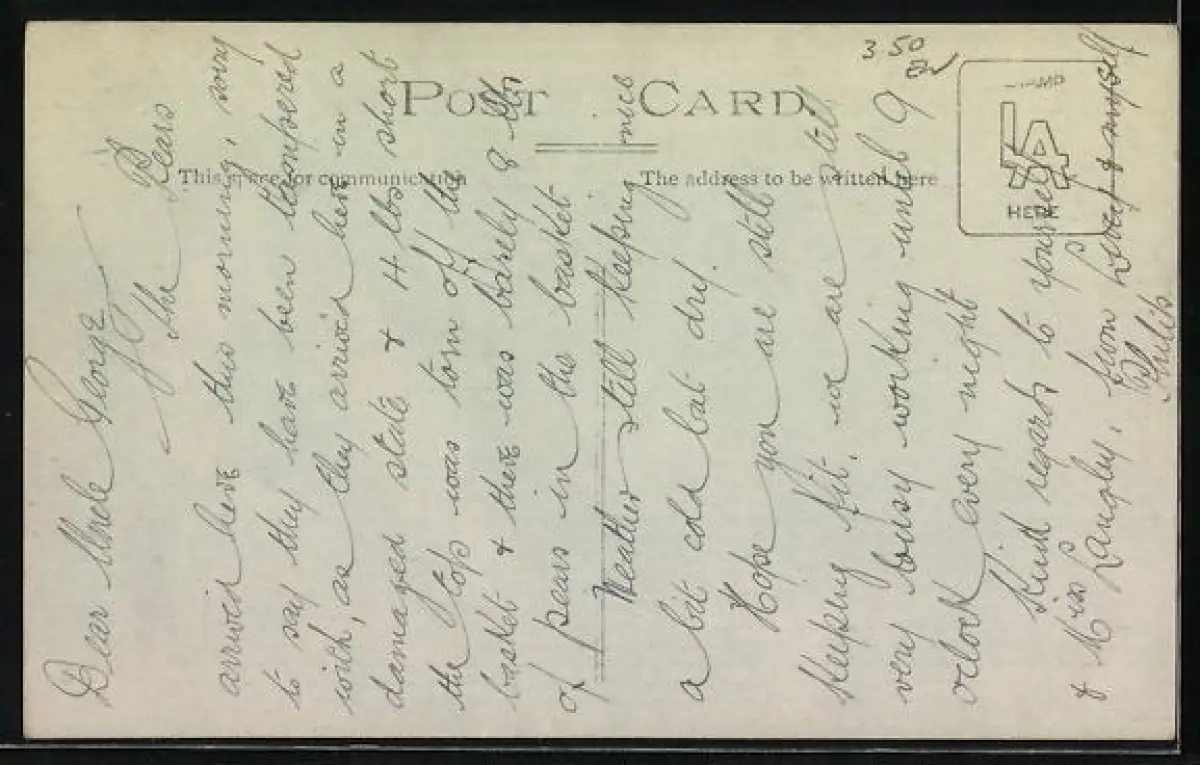 POST CARD
This space for communication
The address to be written here
STAMP
HERE
3 50
Dear Uncle George
The Pears
arrived here this morning, sorry
to say they have been tampered
with, as they arrived here in a
damaged state & 4 lbs short
the top was torn off the
basket & there was barely 8 lbs
of pears in the basket
Weather still keeping nice
a bit cold but dry.
Hope you are still
keeping fit. we are still
very busy working until 9
oclock every night
Kind regards to yourself
& Miss Langley, from & myself
Philip